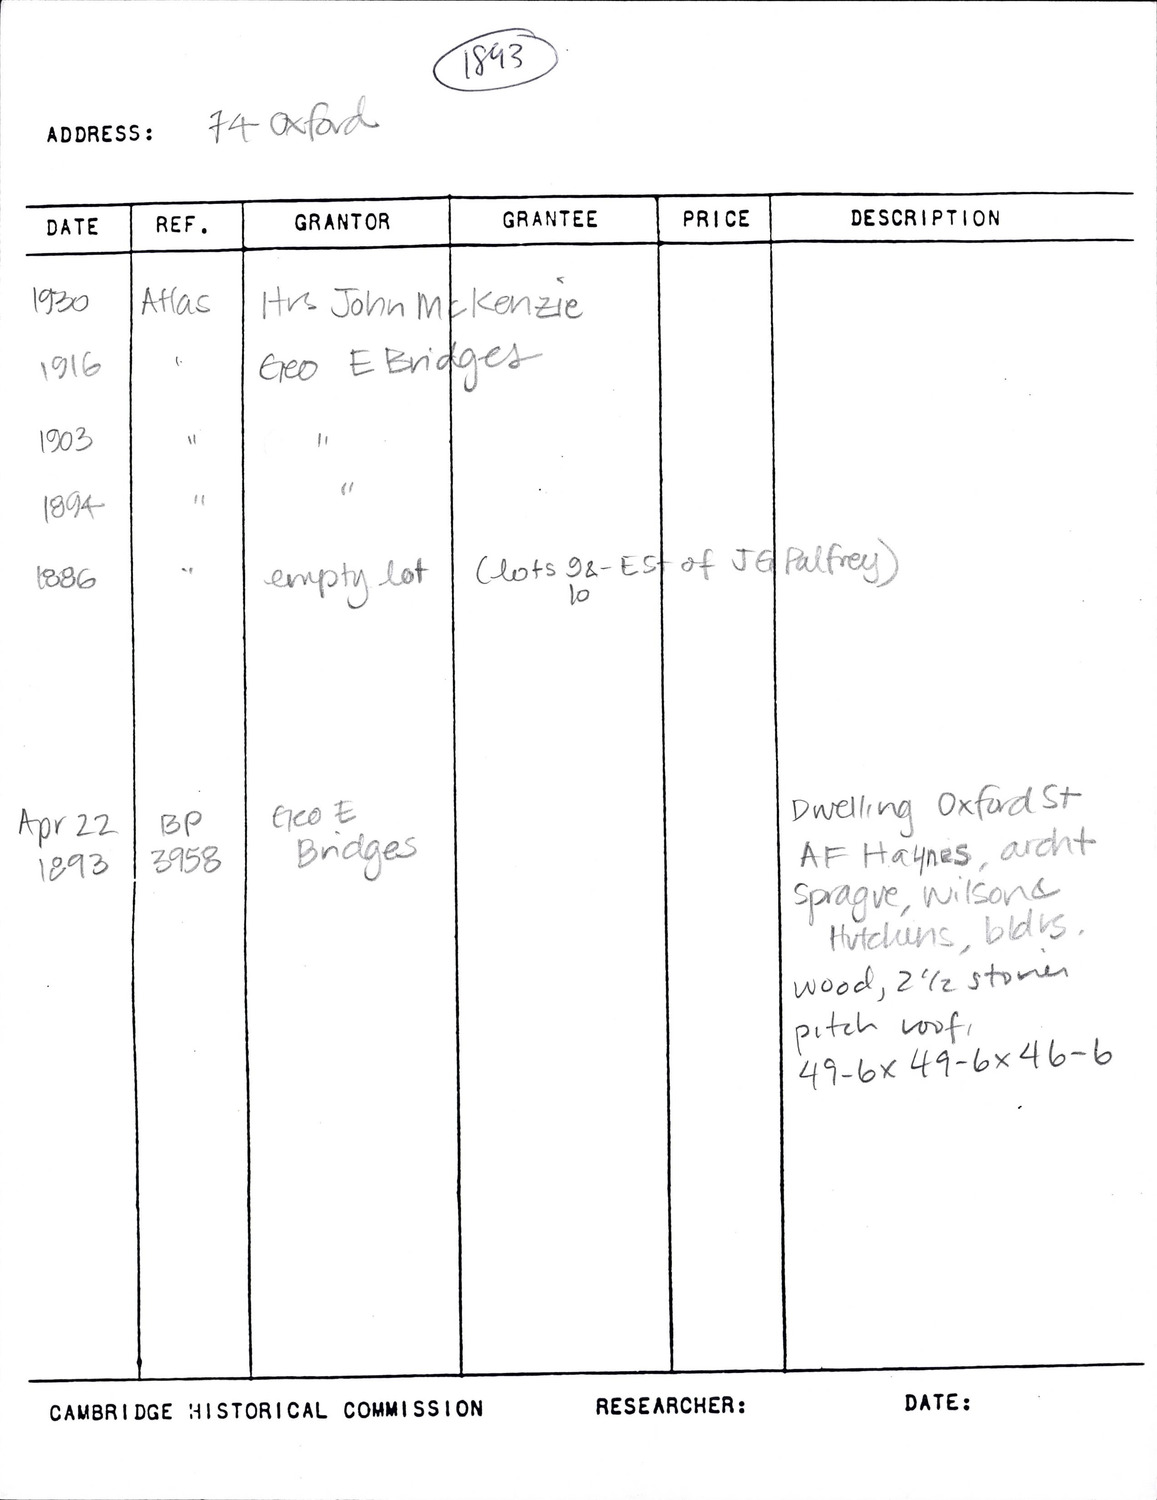 1893
ADDRESS: 74 Oxford
DATE REF. GRANTOR GRANTEE PRICE DESCRIPTION
1930 Atlas Hrs John McKenzie
1916 " Geo E Bridges
1903 " "
1894 " "
1886 " empty lot (lots 9 & - Est of J G Palfrey)
10
Apr 22 BP Geo E Dwelling Oxford St
1893 3958 Bridges AF Haynes, archt
Sprague, Wilson &
Hutchins, bldrs.
wood, 2 1/2 stories
pitch roof,
49-6 x 49-6 x 46-6
CAMBRIDGE HISTORICAL COMMISSION RESEARCHER: DATE: